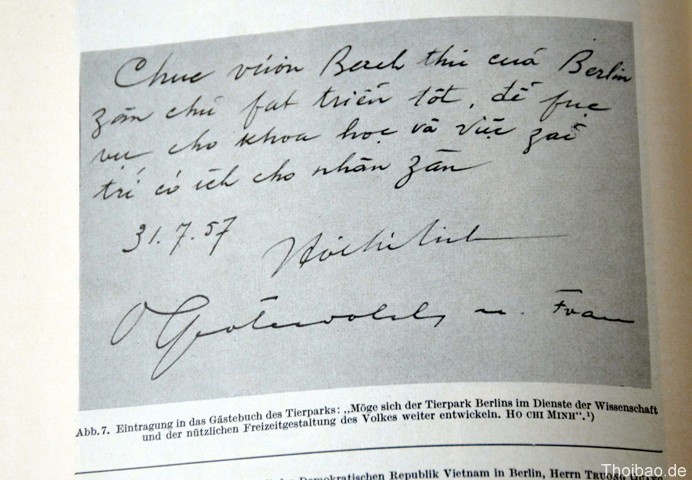 Chuc vườn Bach thú cuả Berlin
zân chủ fat triển tốt, để fuc
vụ cho khoa học và việc zải
trí có ích cho nhân zân
31.7.57
Hồ Chí Minh
O Grotewohl u. Frau
Abb. 7. Eintragung in das Gästebuch des Tierparks: „Möge sich der Tierpark Berlins im Dienste der Wissenschaft
und der nützlichen Freizeitgestaltung des Volkes weiter entwickeln. HO CHI MINH“.¹)
Demokratischen Republik Vietnam in Berlin, Herrn TRUONG
Thoibao.de